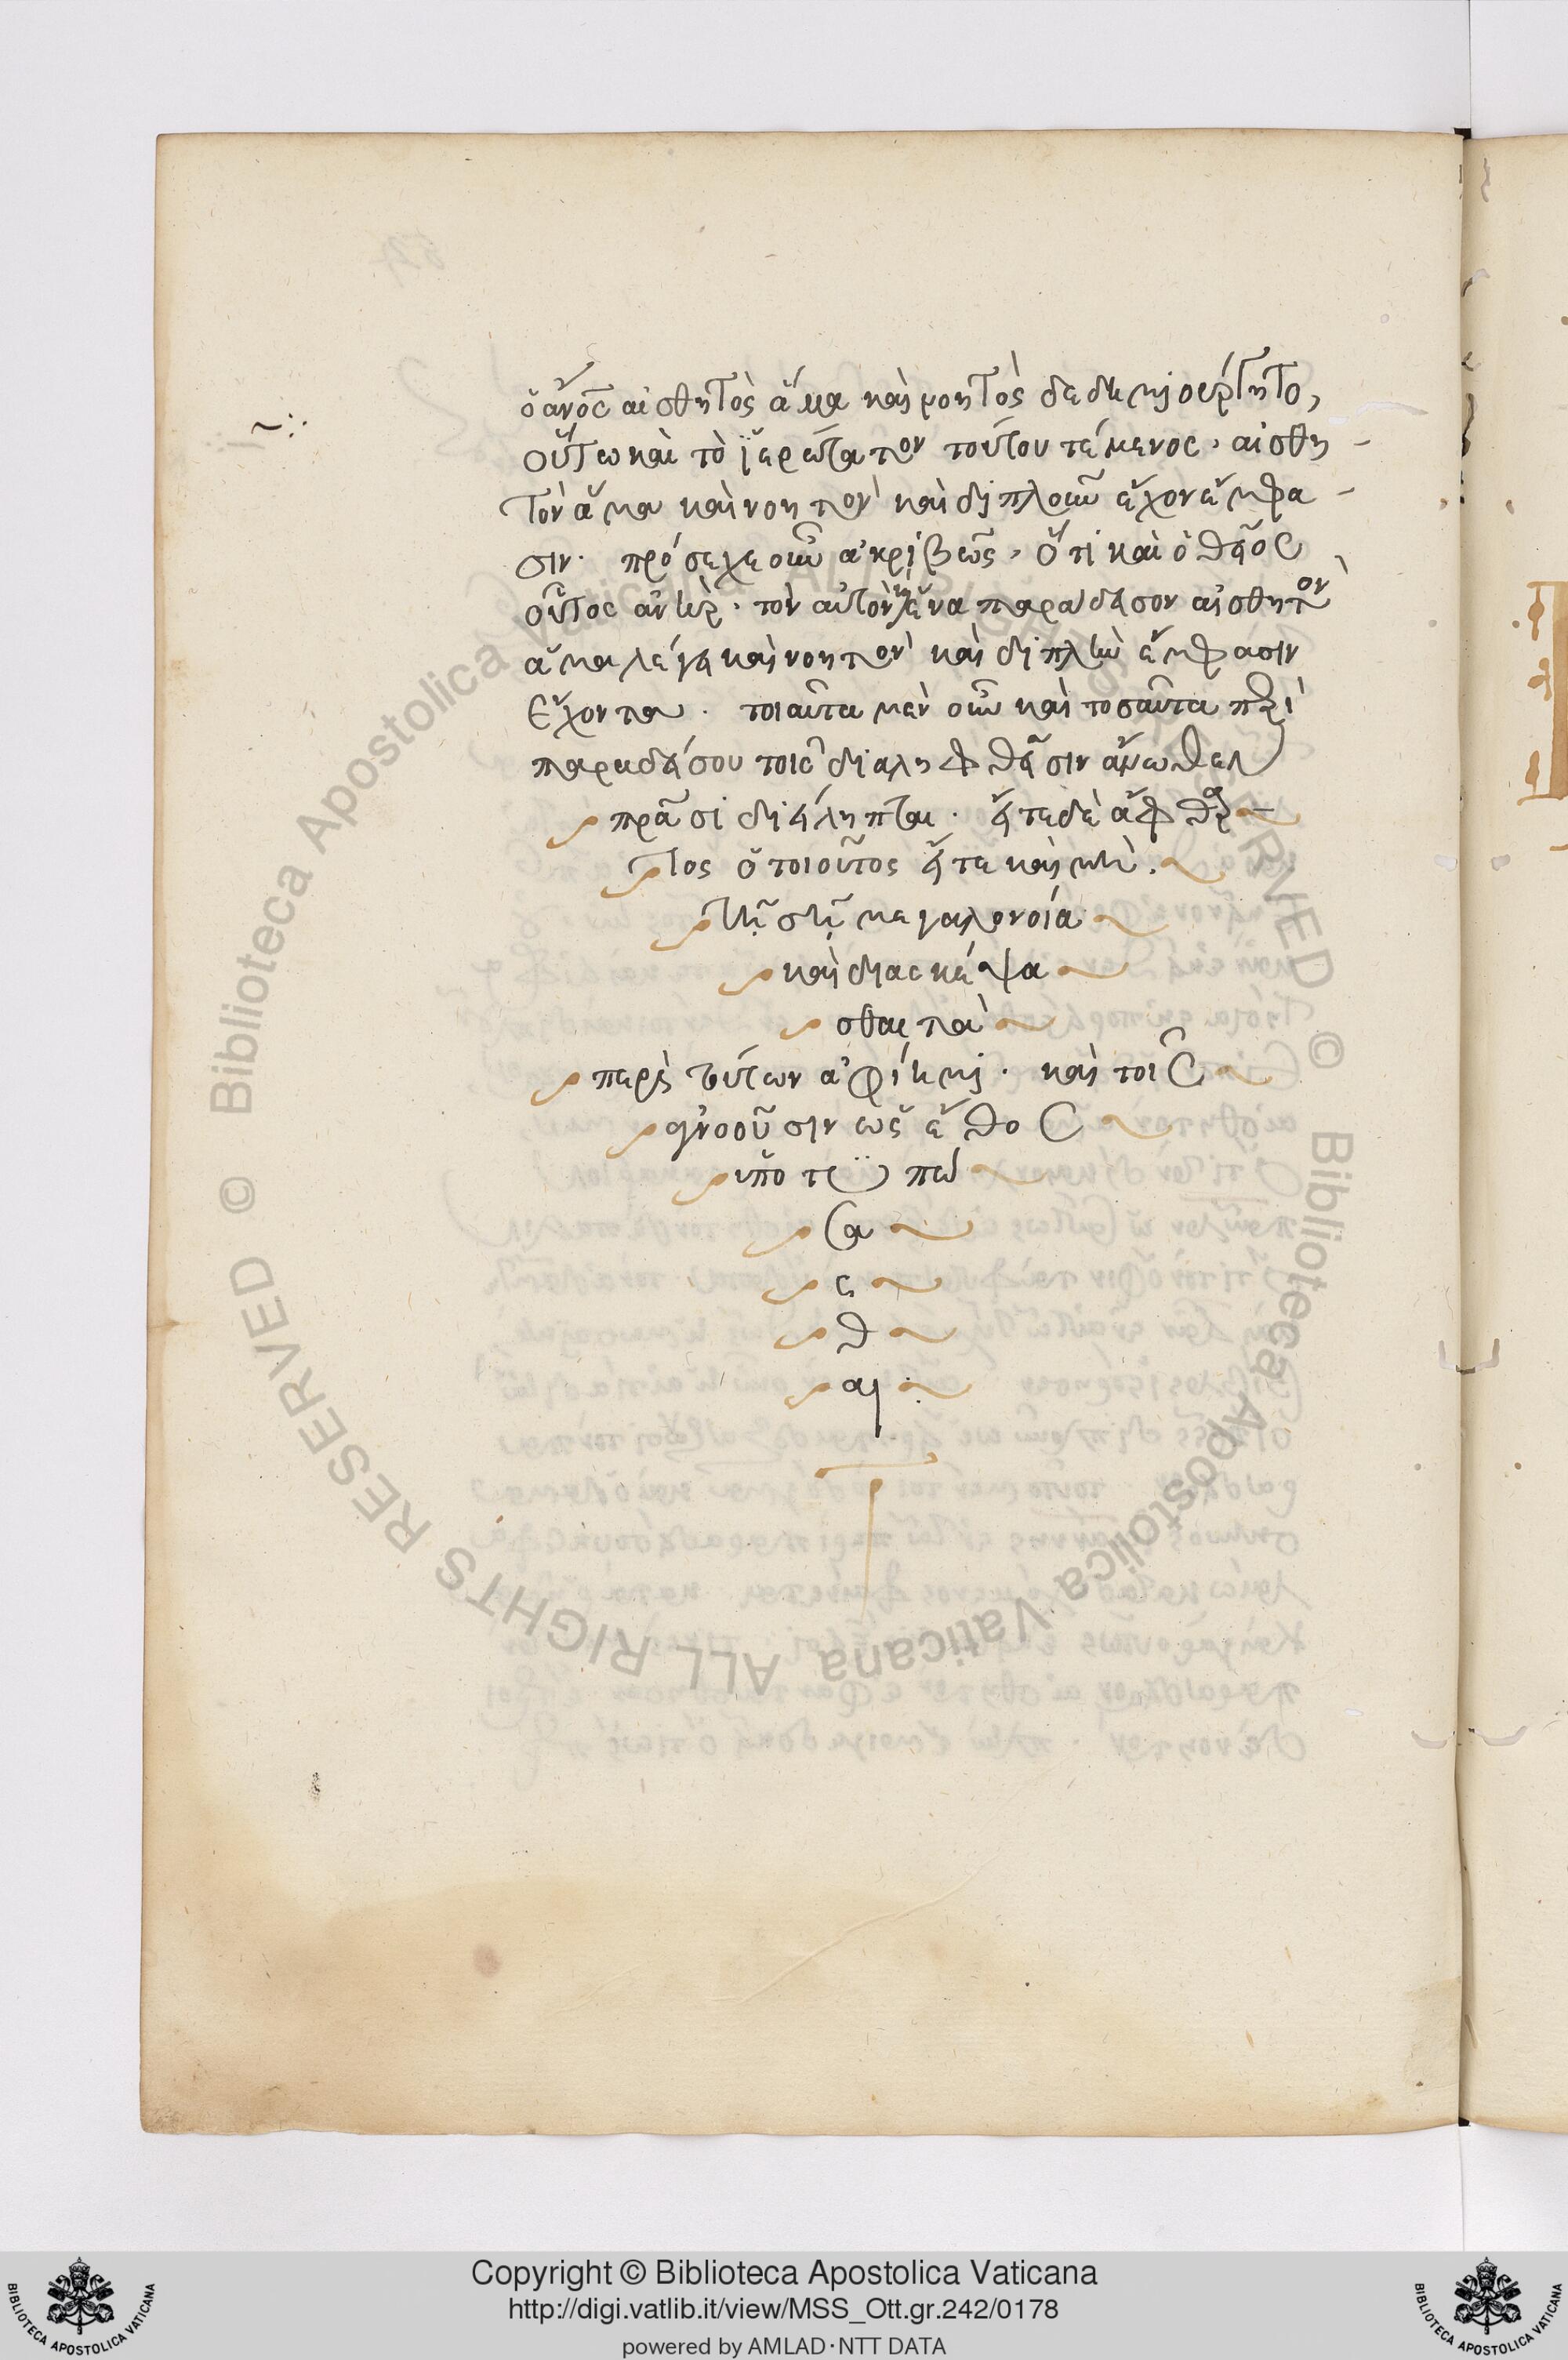 ὁ ἀν̅ο̅ς αἰσθητὸς ἅμα καὶ νοητὸς δεδημιούργητο,
οὕτω καὶ τὸ ἱερώτατον τούτου τέμενος, αἰσθη-
τὸν ἅμα καὶ νοητὸν καὶ διπλοῦν ἔχον ἔμφα-
σιν. πρόσεχε οὖν ἀκριβῶς, ὅτι καὶ ὁ θεῖος
οὗτος ἀνὴρ, τὸν αὐτὸν ἕνα παράδεισον αἰσθητὸν
ἅμα λέγει καὶ νοητὸν καὶ διπλὴν ἔμφασιν
ἔχοντα. τοιαῦτα μὲν οὖν καὶ τοσαῦτα περὶ
παραδείσου τοῖς διαληφθεῖσιν ἄνωθεν
πρᾶσι διείληπται. εἴτε δὲ ἄφθαρ
τος ὁ τοιοῦτος εἴτε καὶ μὴ.
τῇ σῇ μεγαλονοία
καὶ διασκέψα
σθαι τὰ
περὶ τούτων ἀφίημι. καὶ τοῖς
ἀγνοοῦσιν ὡς ἔθος
ὑποτυπώ
σα
ς
θ
αι
~:·
Copyright © Biblioteca Apostolica Vaticana
http://digi.vatlib.it/view/MSS_Ott.gr.242/0178
powered by AMLAD·NTT DATA
BIBLIOTECA APOSTOLICA VATICANA
BIBLIOTECA APOSTOLICA VATICANA
© Biblioteca Apostolica Vaticana ALL RIGHTS RESERVED © Biblioteca Apostolica Vaticana ALL RIGHTS RESERVED